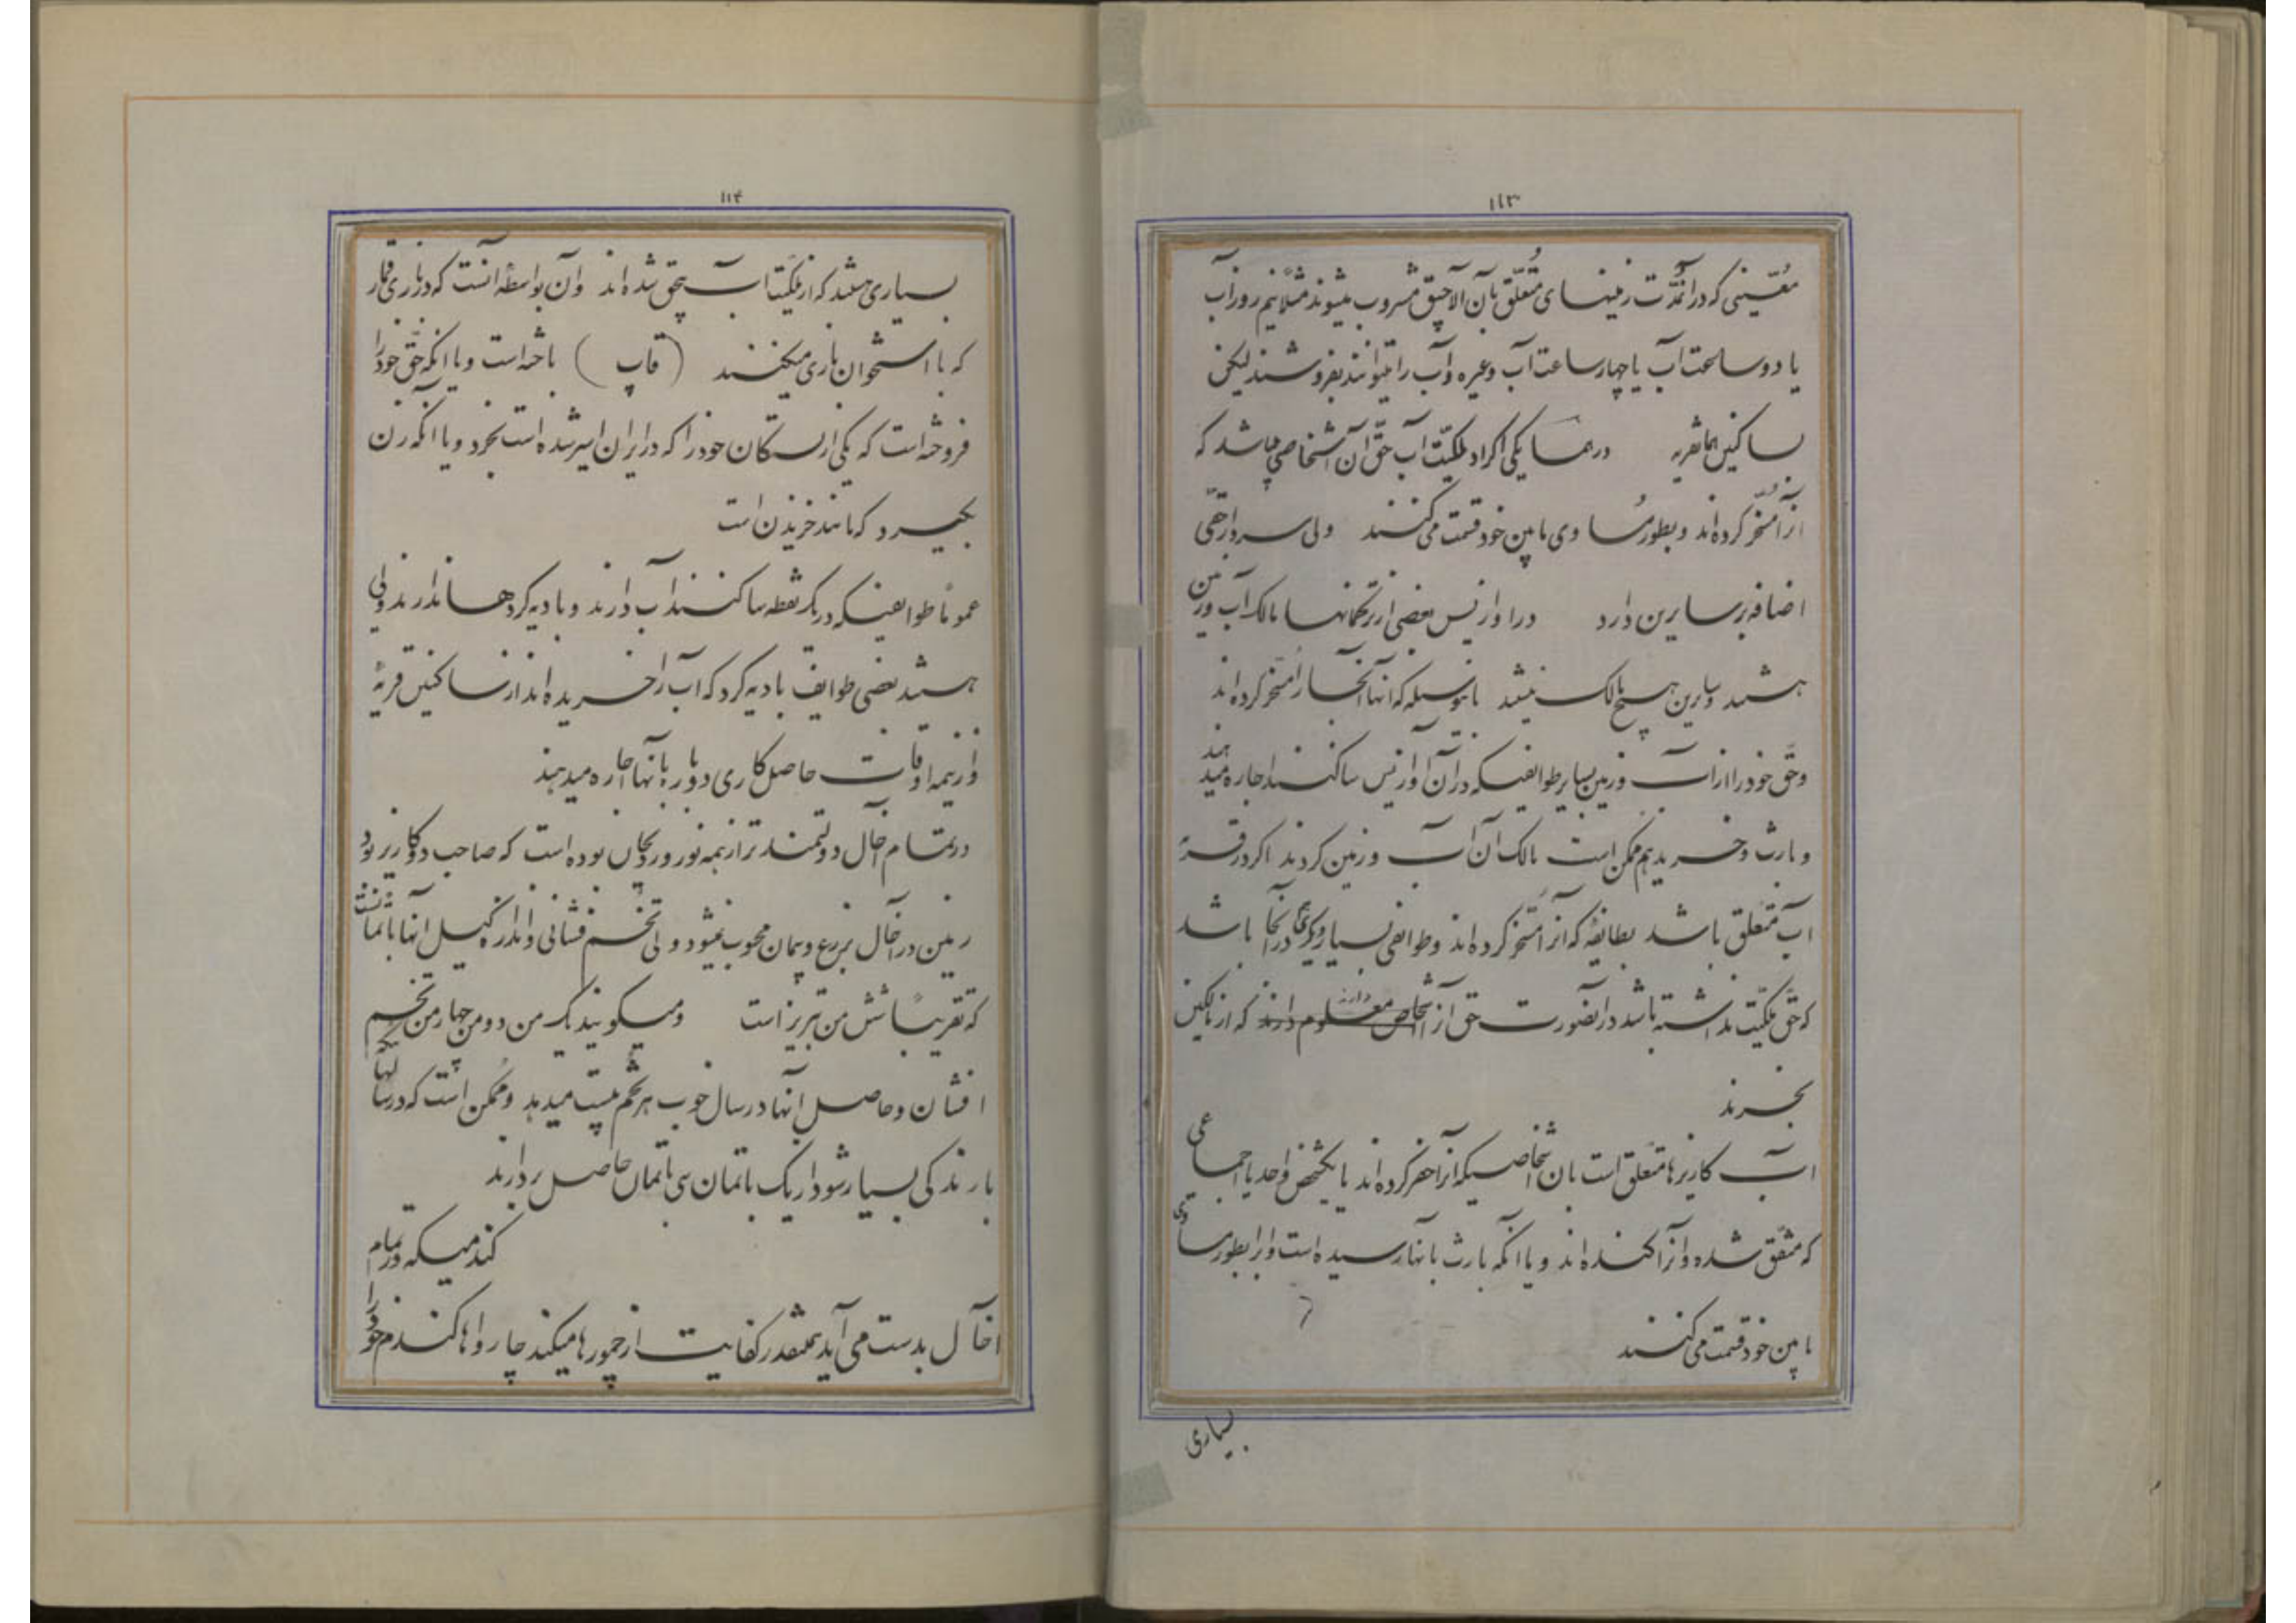 ۱۱۳
معّینی که در آنمُدّت زمینهای مُتعلّق بآن آلاچیق مشروب میشوند مثلاً نیم روز آب
یا دو ساعت آب یا چهار ساعت آب و غیره و آب را میتوانند بفروشند لیکن
بساکنین همانقریه در همسایکی اکراد ملکیّت آب حقّ آن اشخاصی میباشد که
آنرا مُسخّر کرده‌اند و بطور مُساوی مابین خود قسمت می‌کنند ولی سردار حقّی
اضافه بر سایرین دارد در اوازنیس بعضی از ترکمانها مالک آب و زمین
هستند و سایرین هیچ مالک نیستند باینوسیله که آنها آنجا را مُسخّر کرده‌اند
و حقّ خود را از آب و زمین بسایر طوایفیکه در آن اوازنیس ساکنند اجاره میدهند
و بارث و خرید هم ممکن است مالک آن آب و زمین کردند اکر در قریهٔ
آب متعلّق باشد بطایفهٔ که آنرا مُسخّر کرده‌اند و طوایفی بسیار دیکری در آنجا باشد
که حقّ ملکیّت نداشته باشد در آنصورت حق از اشخاص معلوم دارند که از مالکین
بخرند
آب کاریزها متعلّق است بآن اشخاصیکه آنرا حفر کرده‌اند یا یکشخص واحد یا اجماعی
که متّفق شده و آنرا کنده‌اند و یا آنکه بارث بآنها رسیده است و آنرا بطور مساوی
مابین خود قسمت می‌کنند
بسیاری
۱۱۴
بسیاری هستند که از ملکیّت آب بیحق شده‌اند و آن بواسطهٔ آنست که در بازی قمار
که با استخوان بازی میکنند (قاپ) باخته است و یا آنکه حقّ خود را
فروخته است که یکی از بستکان خود را که در ایران اسیر شده است بخرد و یا آنکه زن
بکیرد که مانند خریدن است
عموماً طوایفیکه در یک نقطه ساکنند آب دارند و بادیه کردها ندارند ولی
هستند بعضی طوایف بادیه کرد که آب را خریده‌اند از ساکنین قریهٔ
و از نیمه اوقات حاصل کاری دوباره بآنها اجاره میدهند
در تمام آخال دولتمندتر از همه نوروردیخان بوده است که صاحب دو کاریز بود
زمین در آخال بزرع و پیمان محسوب نمیشود ولی تخم فشانی و اندازه کیل آنها باتمانست
که تقریباً شش من تبریز است و میکویند یک من دو من چهار من تخم
افشان و حاصل آنها در سال خوب هر تخم بیست میدهد و ممکن است که در سالهائیکه
بارندکی بسیار شود از یک باتمان سی باتمان حاصل بردارند
کندمیکه در تمام
آخال بدست می‌آید بمقدر کفایت از جمورها میکند چارواها کندم خود را